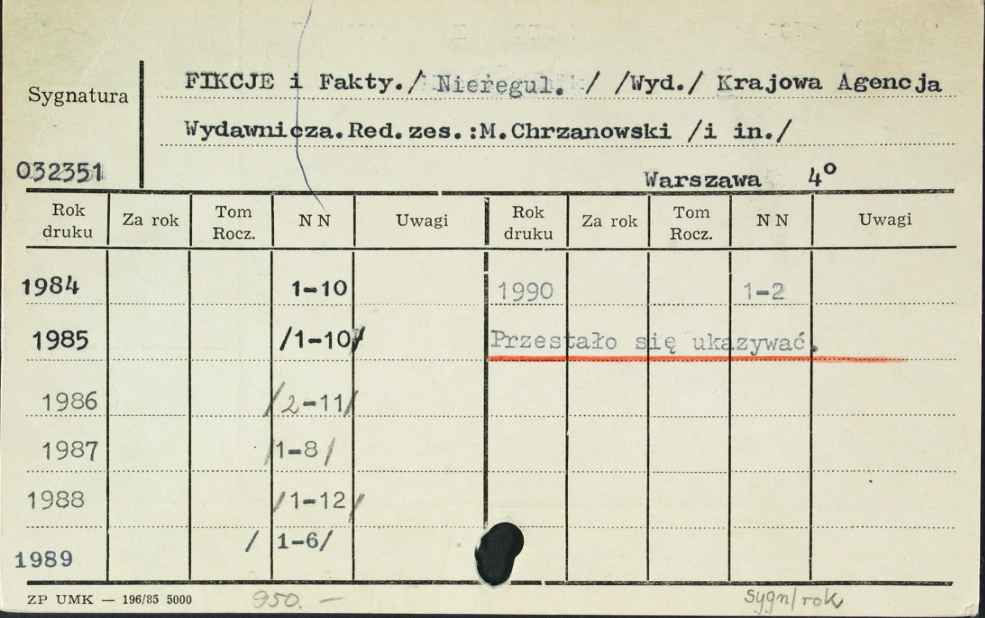 FIKCJE i Fakty./ Nieregul. / /Wyd./ Krajowa Agencja
Sygnatura
Wydawnicza.Red.zes.:M.Chrzanowski /i in./
032351
Warszawa 4°
Rok druku Za rok Tom Rocz. N N Uwagi Rok druku Za rok Tom Rocz. N N Uwagi
1984 1-10 1990 1-2
1985 /1-10/ Przestało się ukazywać.
1986 /2-11/
1987 /1-8/
1988 /1-12/
1989 / 1-6/
ZP UMK — 196/85 5000 950.— sygn/rok